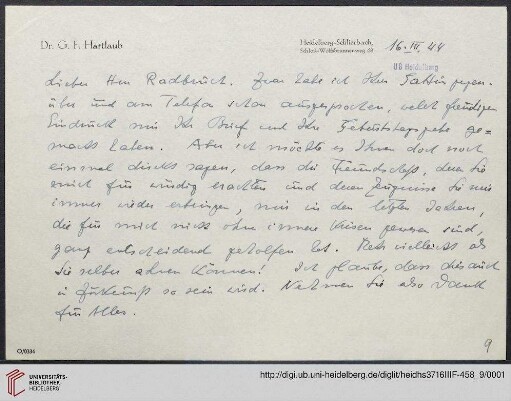 Dr. G. F. Hartlaub
Heidelberg-Schlierbach,
Schloß-Wolfsbrunnenweg
16. III. 44
UB Heidelberg
Lieber Herr Radbruch. Zwar habe ich Ihrer Gattin gegen-
über und am Telefon schon ausgesprochen, welch freudigen
Eindruck mir Ihr Brief und Ihre Geburtstagsgabe ge-
macht haben. Aber ich möchte es Ihnen doch noch
einmal direkt sagen, dass die Freundschaft, deren Sie
mich für würdig erachten und deren Zeugnisse Sie mir
immer wieder erbringen, mir in den letzten Jahren,
die für mich nicht ohne innere Krisen gewesen sind,
ganz entscheidend geholfen hat. Mehr vielleicht als
Sie selber ahnen können! Ich glaube, dass dies auch
in Zukunft so sein wird. Nehmen Sie also Dank
für Alles.
O/0336
9
UNIVERSITÄTS-
BIBLIOTHEK
HEIDELBERG
http://digi.ub.uni-heidelberg.de/diglit/heidhs3716IIIF-458_9/0001